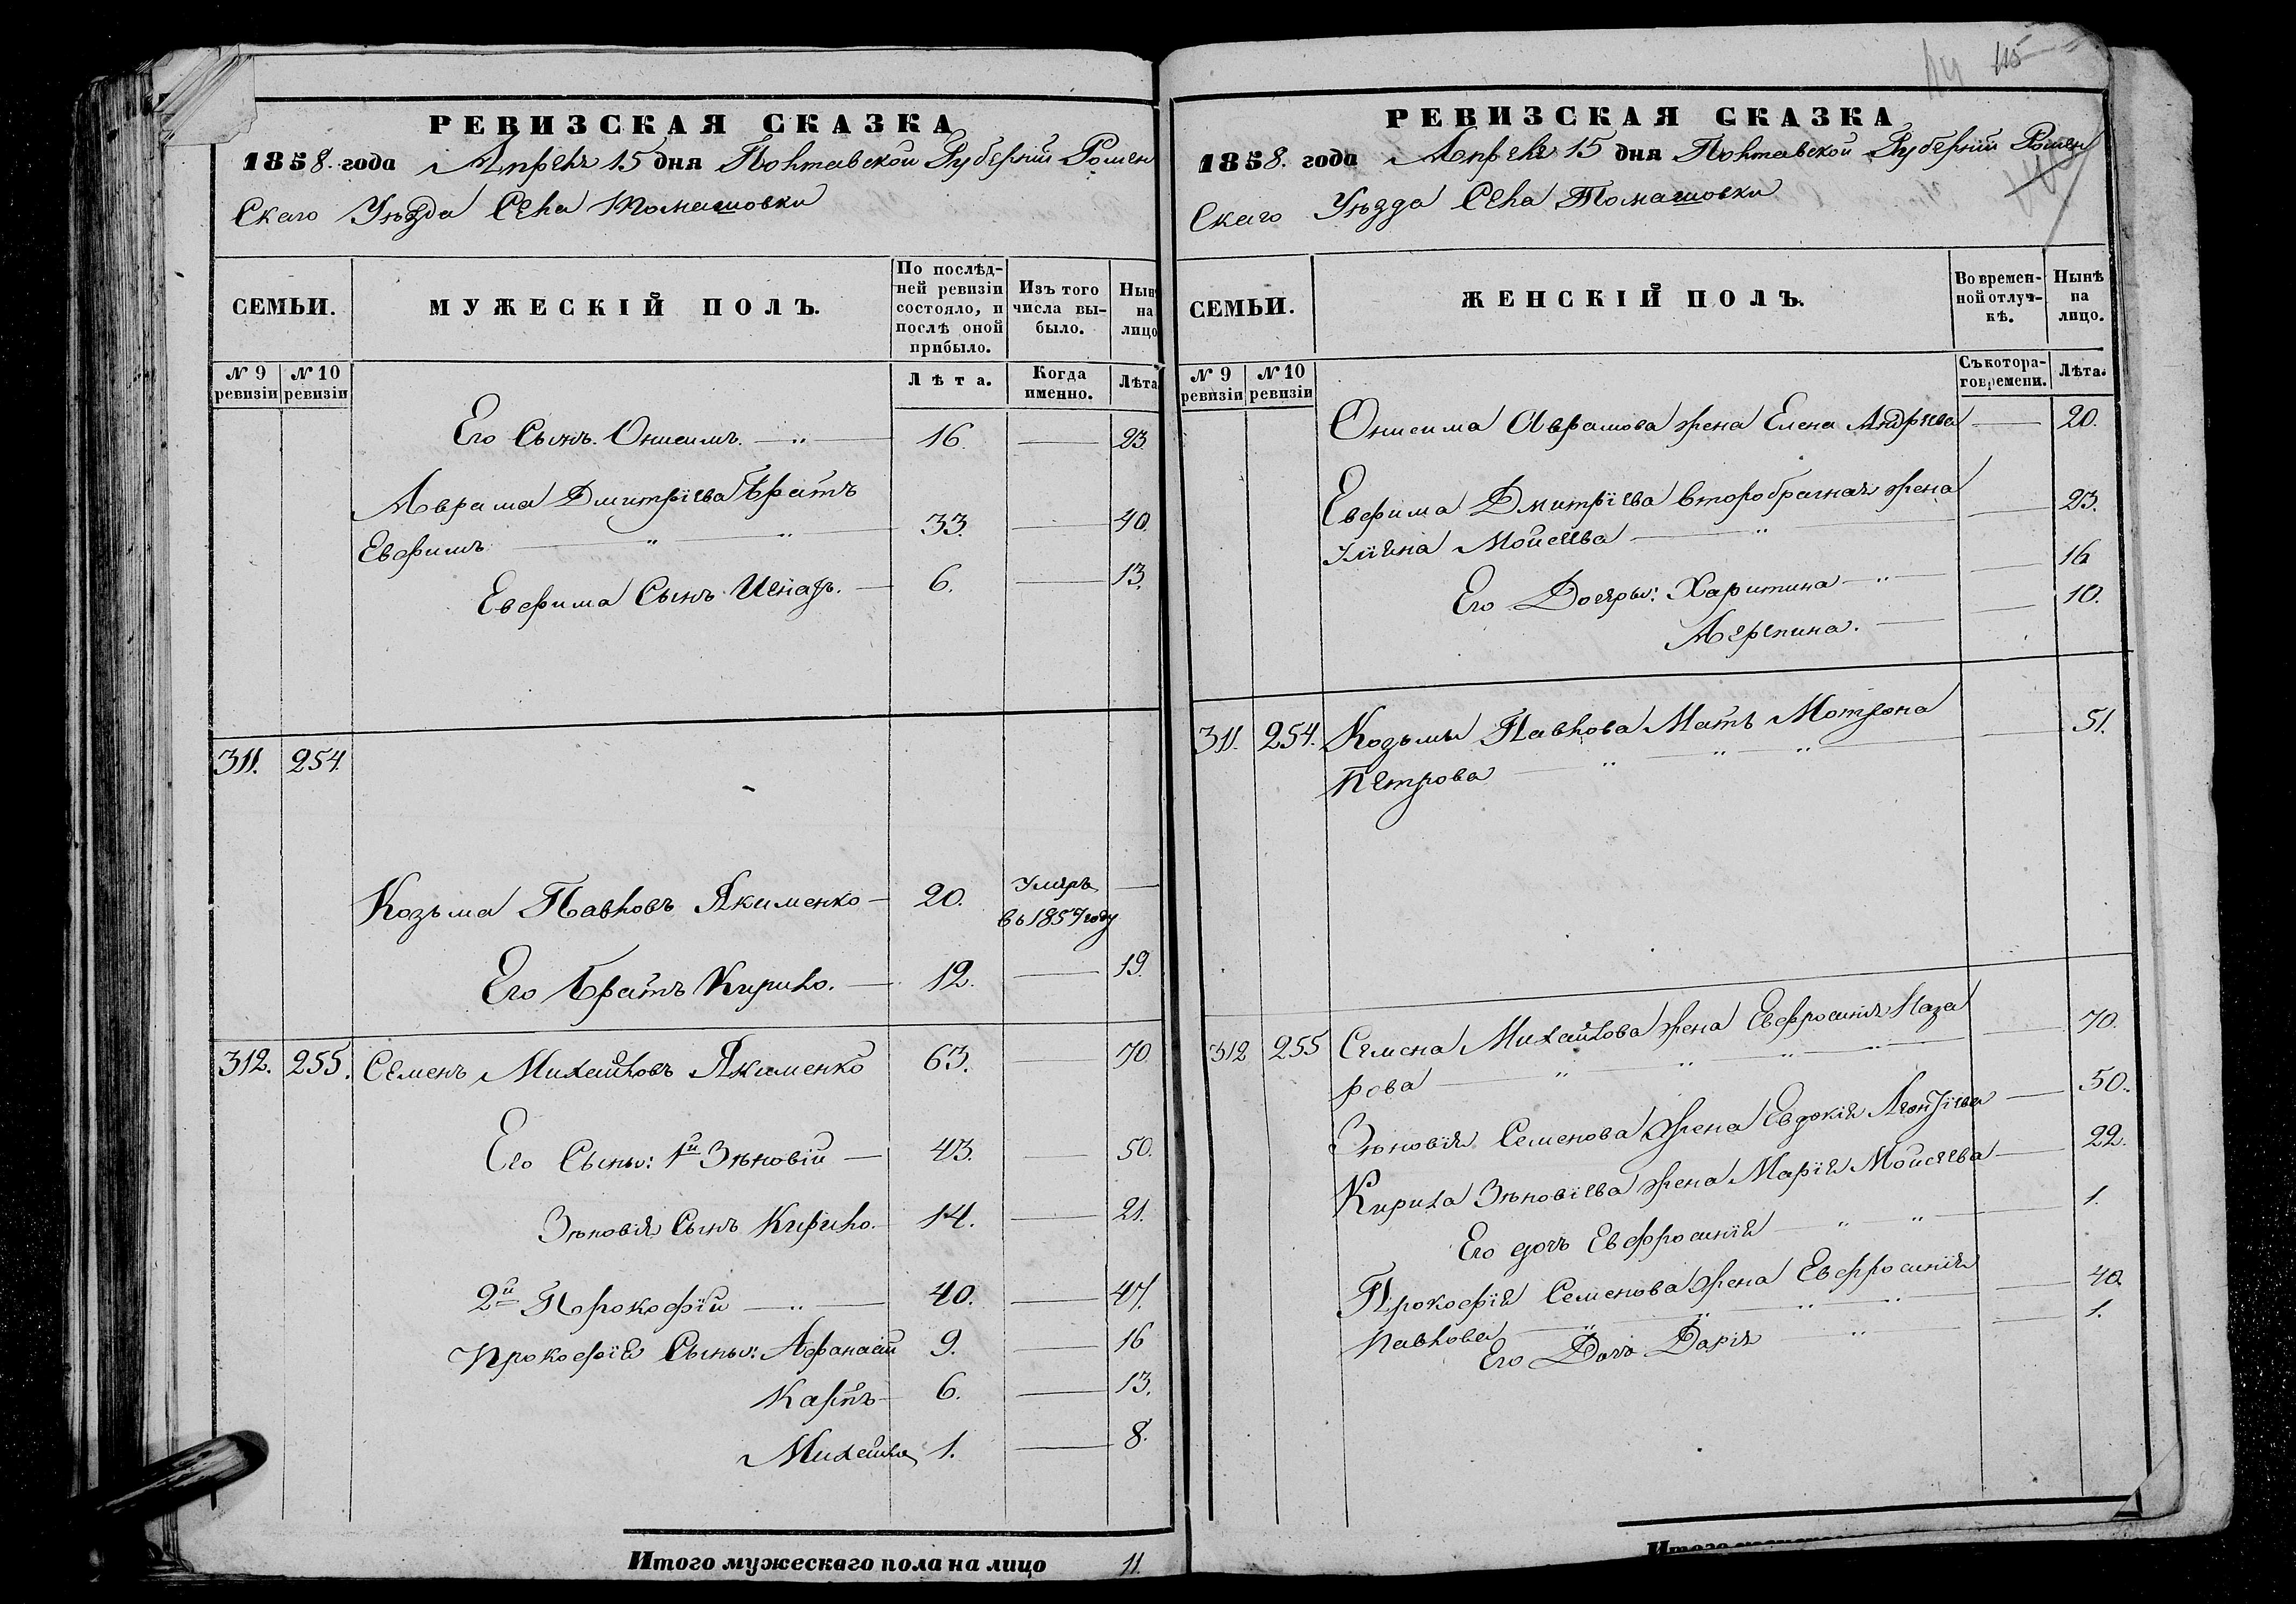 РЕВИЗСКАЯ СКАЗКА
1858. года Апреля 15 дня Полтавской Губерніи Ромен
скаго Уѣзда Села Томашовки
СЕМЬИ.
МУЖЕСКІЙ ПОЛЪ.
По послѣд-
ней ревизіи
состояло, и
послѣ оной
прибыло.
Изъ того
числа вы-
было.
Нын
на
лицо
№ 9
ревизіи
№ 10
ревизіи
Лѣта.
Когда
именно.
Лѣта
Его Сынъ Онисимъ. 16. 23
Аврама Дмитріева Братъ
Евфимъ 33. 40.
Евфима Сынъ Игнатъ. 6. 13.
311. 254.
Козьма Павловъ Якименко 20. Умеръ
въ 1857 году
Его Братъ Кирило. 12. 19
312. 255. Семенъ Михайловъ Якименко 63. 70
Его Сыны: 1й Зѣновій 43. 50.
Зѣновія Сынъ Кирило. 14. 21.
2й Прокофій 40. 47.
Прокофія Сыны: Афанасій 9. 16
Карпъ 6. 13.
Михайла 1. 8.
Итого мужескаго пола на лицо 11.
115
РЕВИЗСКАЯ СКАЗКА
1858. года Апреля 15 дня Полтавской Губерніи Ромен
скаго Уѣзда Села Томашовки
СЕМЬИ.
ЖЕНСКІЙ ПОЛЪ.
Во времен-
ной отлуч-
кѣ.
Нынѣ
на
лицо.
№ 9
ревизіи
№ 10
ревизіи
Съ котора-
го времени.
Лѣта.
Онисима Аврамова жена Елена Андрѣева 20.
Евфима Дмитріева второбрачная жена
Уліяна Мойсеева 23.
Его Дочеры: Харитина 16
Агрепина. 10.
311. 254. Козьмы Павлова Мать Мотрона
Петрова 51.
312 255 Семена Михайлова жена Евфросинія Наза
рова 70.
Зѣновія Семенова жена Евдокія Леонтіева 50.
Кирила Зѣновіева жена Марія Мойсеева 22.
Его дочъ Евфросинія 1.
Прокофія Семенова жена Евфросинія
Павлова 40.
Его Дочъ Дарія 1.